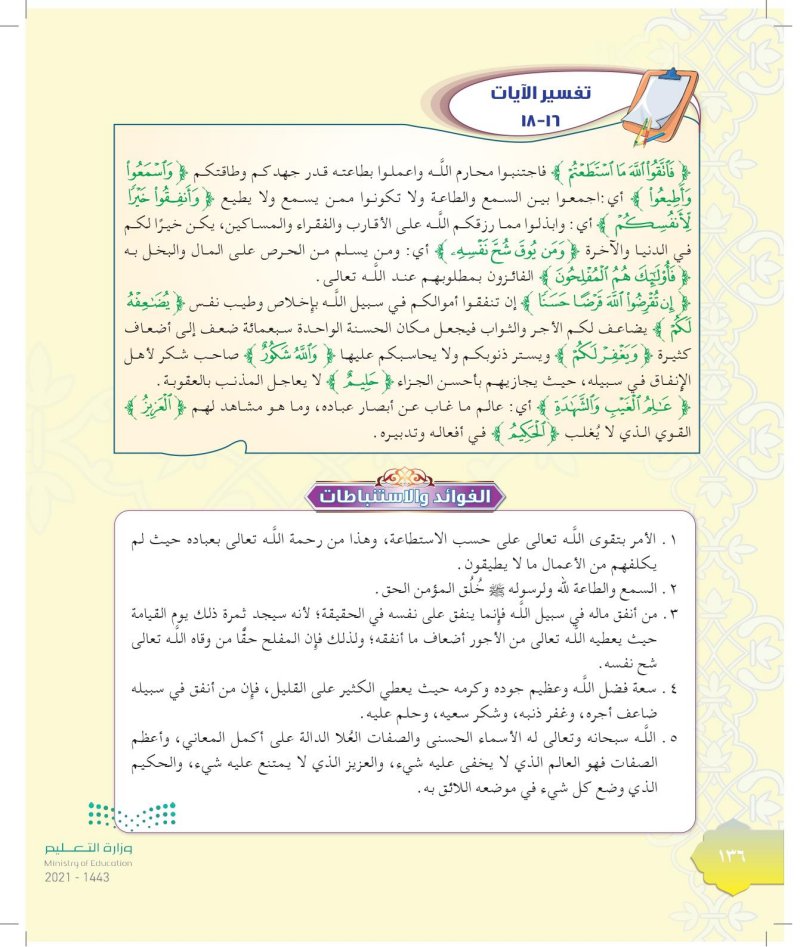 تفسير الآيات
١٦-١٨
﴿ فَٱتَّقُوا۟ ٱللَّهَ مَا ٱسْتَطَعْتُمْ ﴾ فاجتنبوا محارم اللَّـه واعملوا بطاعته قدر جهدكم وطاقتكم ﴿ وَٱسْمَعُوا۟
وَأَطِيعُوا۟ ﴾ أي: اجمعوا بين السمع والطاعة ولا تكونوا ممن يسمع ولا يطيع ﴿ وَأَنفِقُوا۟ خَيْرًا
لِّأَنفُسِكُمْ ﴾ أي: وابذلوا مما رزقكم اللَّـه على الأقارب والفقراء والمساكين، يكـن خيـرًا لكـم
في الدنيا والآخرة ﴿ وَمَن يُوقَ شُحَّ نَفْسِهِۦ ﴾ أي: ومن يسلم من الحرص على المال والبخل به
﴿ فَأُو۟لَـٰٓئِكَ هُمُ ٱلْمُفْلِحُونَ ﴾ الفائـزون بمطلوبهم عنـد اللَّـه تعالى .
﴿ إِن تُقْرِضُوا۟ ٱللَّهَ قَرْضًا حَسَنًا ﴾ إن تنفقـوا أموالكم في سبيل اللَّـه بإخلاص وطيب نفس ﴿ يُضَـٰعِفْهُ
لَكُمْ ﴾ يضاعف لكـم الأجـر والثـواب فيجعـل مكان الحسنة الواحدة سبعمائة ضعـف إلى أضعاف
كثيـرة ﴿ وَيَغْفِرْ لَكُمْ ﴾ ويستـر ذنوبكم ولا يحاسبكم عليها ﴿ وَٱللَّهُ شَكُورٌ ﴾ صاحب شكر لأهـل
الإنفاق في سبيله، حيـث يجازيهم بأحسن الجزاء ﴿ حَلِيمٌ ﴾ لا يعاجل المذنب بالعقوبة .
﴿ عَـٰلِمُ ٱلْغَيْبِ وَٱلشَّهَـٰدَةِ ﴾ أي: عالـم ما غاب عـن أبصار عباده، وما هـو مشاهد لهـم ﴿ ٱلْعَزِيزُ ﴾
القـوي الـذي لا يُغلب ﴿ ٱلْحَكِيمُ ﴾ في أفعاله وتدبيره .
الفوائد والاستنباطات
١ . الأمر بتقوى اللَّـه تعالى على حسب الاستطاعة، وهذا من رحمة اللَّـه تعالى بعباده حيث لـم
يكلفهم من الأعمال ما لا يطيقون .
٢ . السمع والطاعة لله ولرسوله ﷺ خُلُق المؤمن الحق .
٣ . من أنفق ماله في سبيل اللَّـه فإنما ينفق على نفسه في الحقيقة؛ لأنه سيجد ثمرة ذلك يوم القيامة
حيث يعطيه اللَّـه تعالى من الأجور أضعاف ما أنفقه؛ ولذلك فإن المفلح حقًّا من وقاه اللَّـه تعالى
شح نفسه .
٤ . سعة فضل اللَّـه وعظيم جوده وكرمه حيث يعطي الكثير على القليل، فإن من أنفق في سبيله
ضاعف أجره، وغفر ذنبه، وشكر سعيه، وحلم عليه .
٥ . اللَّـه سبحانه وتعالى له الأسماء الحسنى والصفات العُلا الدالة على أكمل المعاني، وأعظم
الصفات فهو العالم الذي لا يخفى عليه شيء، والعزيز الذي لا يمتنع عليه شيء، والحكيم
الذي وضع كل شيء في موضعه اللائق به .
وزارة التعـــليم
Ministry of Education
2021 - 1443
١٣٦